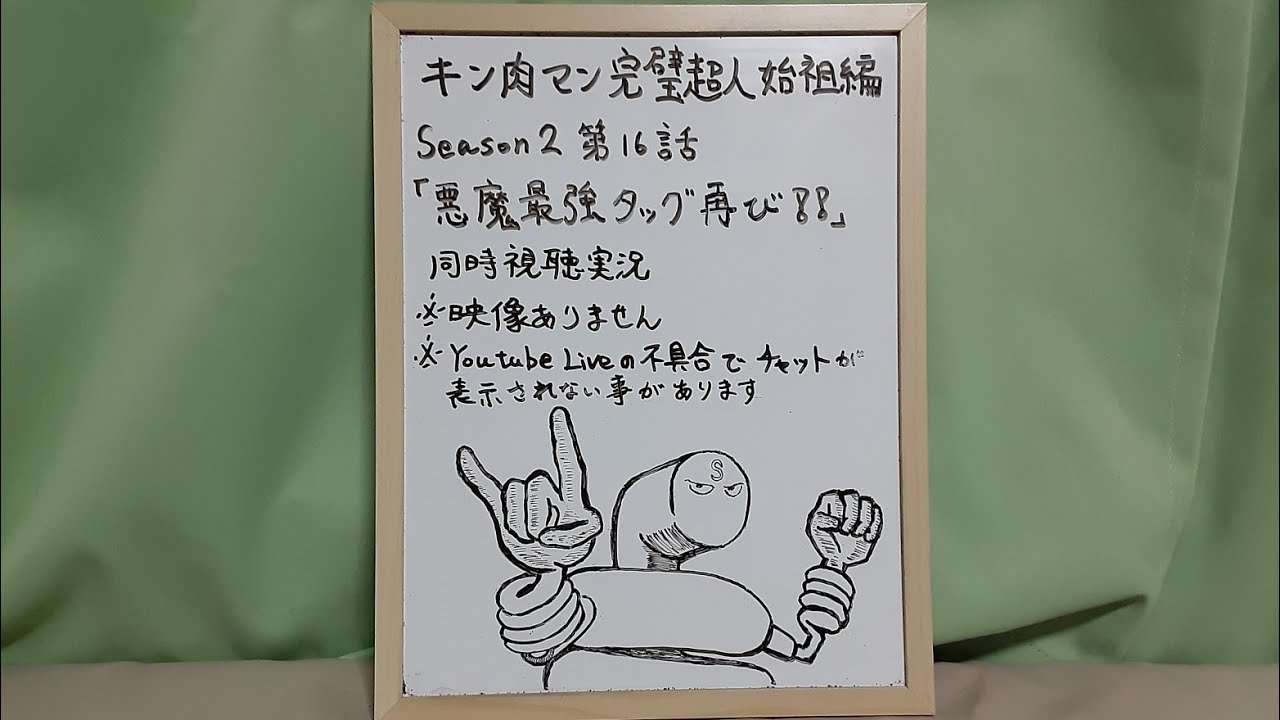 キン肉マン完璧超人始祖編
Season2 第16話
「悪魔最強タッグ再び!!」
同時視聴実況
※映像ありません
※Youtube Liveの不具合でチャットが
表示されない事があります
S